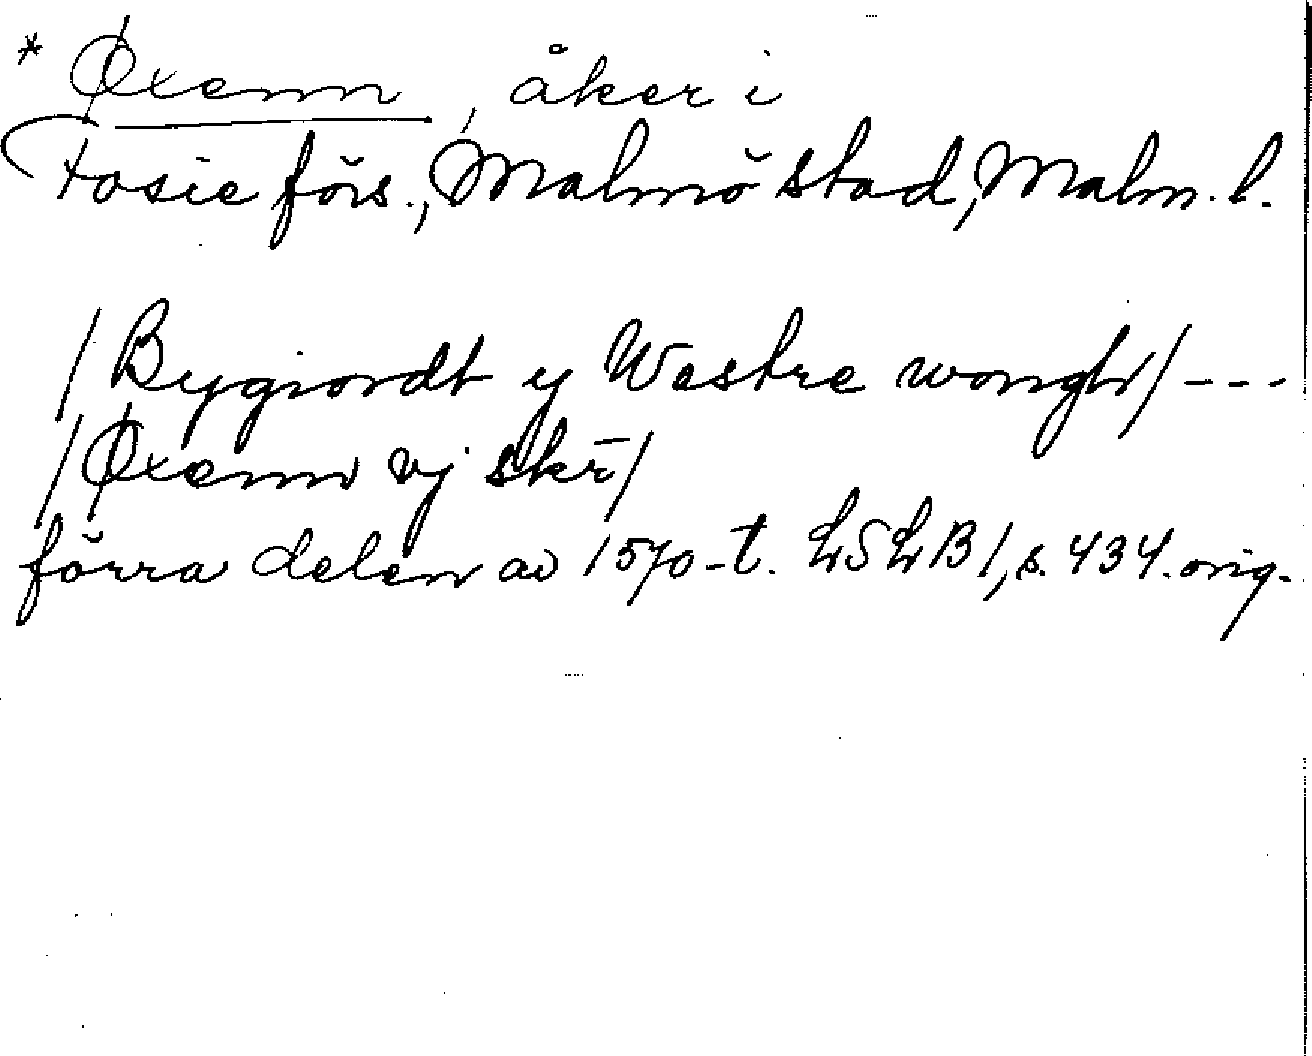 * Øxenn, åker i
Fosie förs., Malmö stad, Malm. l.
/Bygiordt y Westre wongh/ ---
/Øxenn vj skr̄/
förra delen av 1570-t. LSLB1, s. 434. orig.